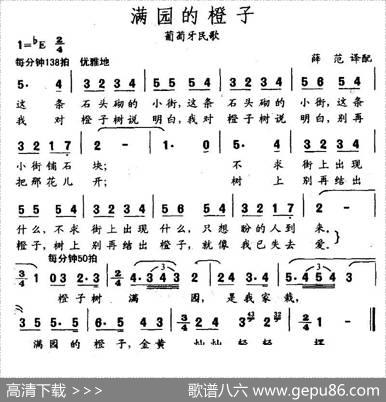 满园的橙子
葡萄牙民歌
1=♭E 2/4
薛 范 译配
每分钟138拍 优雅地
5· 4 | 3 2 3 4 | 5 5 5 4 | 3 2 3 4 | 5 6 5 4 |
这 条 石头砌的 小街,这条 石头砌的 小街,这条
我 对 橙子树说 明白,我对 橙子树说 明白,别再
3 2 1 7 | 2 - | 1· 0 | 5· 4 | 3 2 3 4 |
小街铺石 块; 不 求 街上出现
把那花儿 开; 树 上 别再结出
5 5 5 4 | 3 2 3 4 | 5 6 5 4 | 3 2 1 7 | 2 - |
什么,不求 街上出现 什么,只想 盼的人到 来。
橙子,树上 别再结出 橙子,就像 我已失去 爱。
每分钟50拍
3/4 1 0 3 2 · 3 | 2/4 4 · 3 4 3 | 3/4 1 3 2 · 1 | 2/4 5 · 4 5 4 |
橙子树 满 园, 是我家 栽,
3 5 5 5 · 6 | 2/4 5· 4 | 3/4
满园的 橙子,金黄 灿灿
高清下载 >>>
歌谱八六 www.gepu86.com